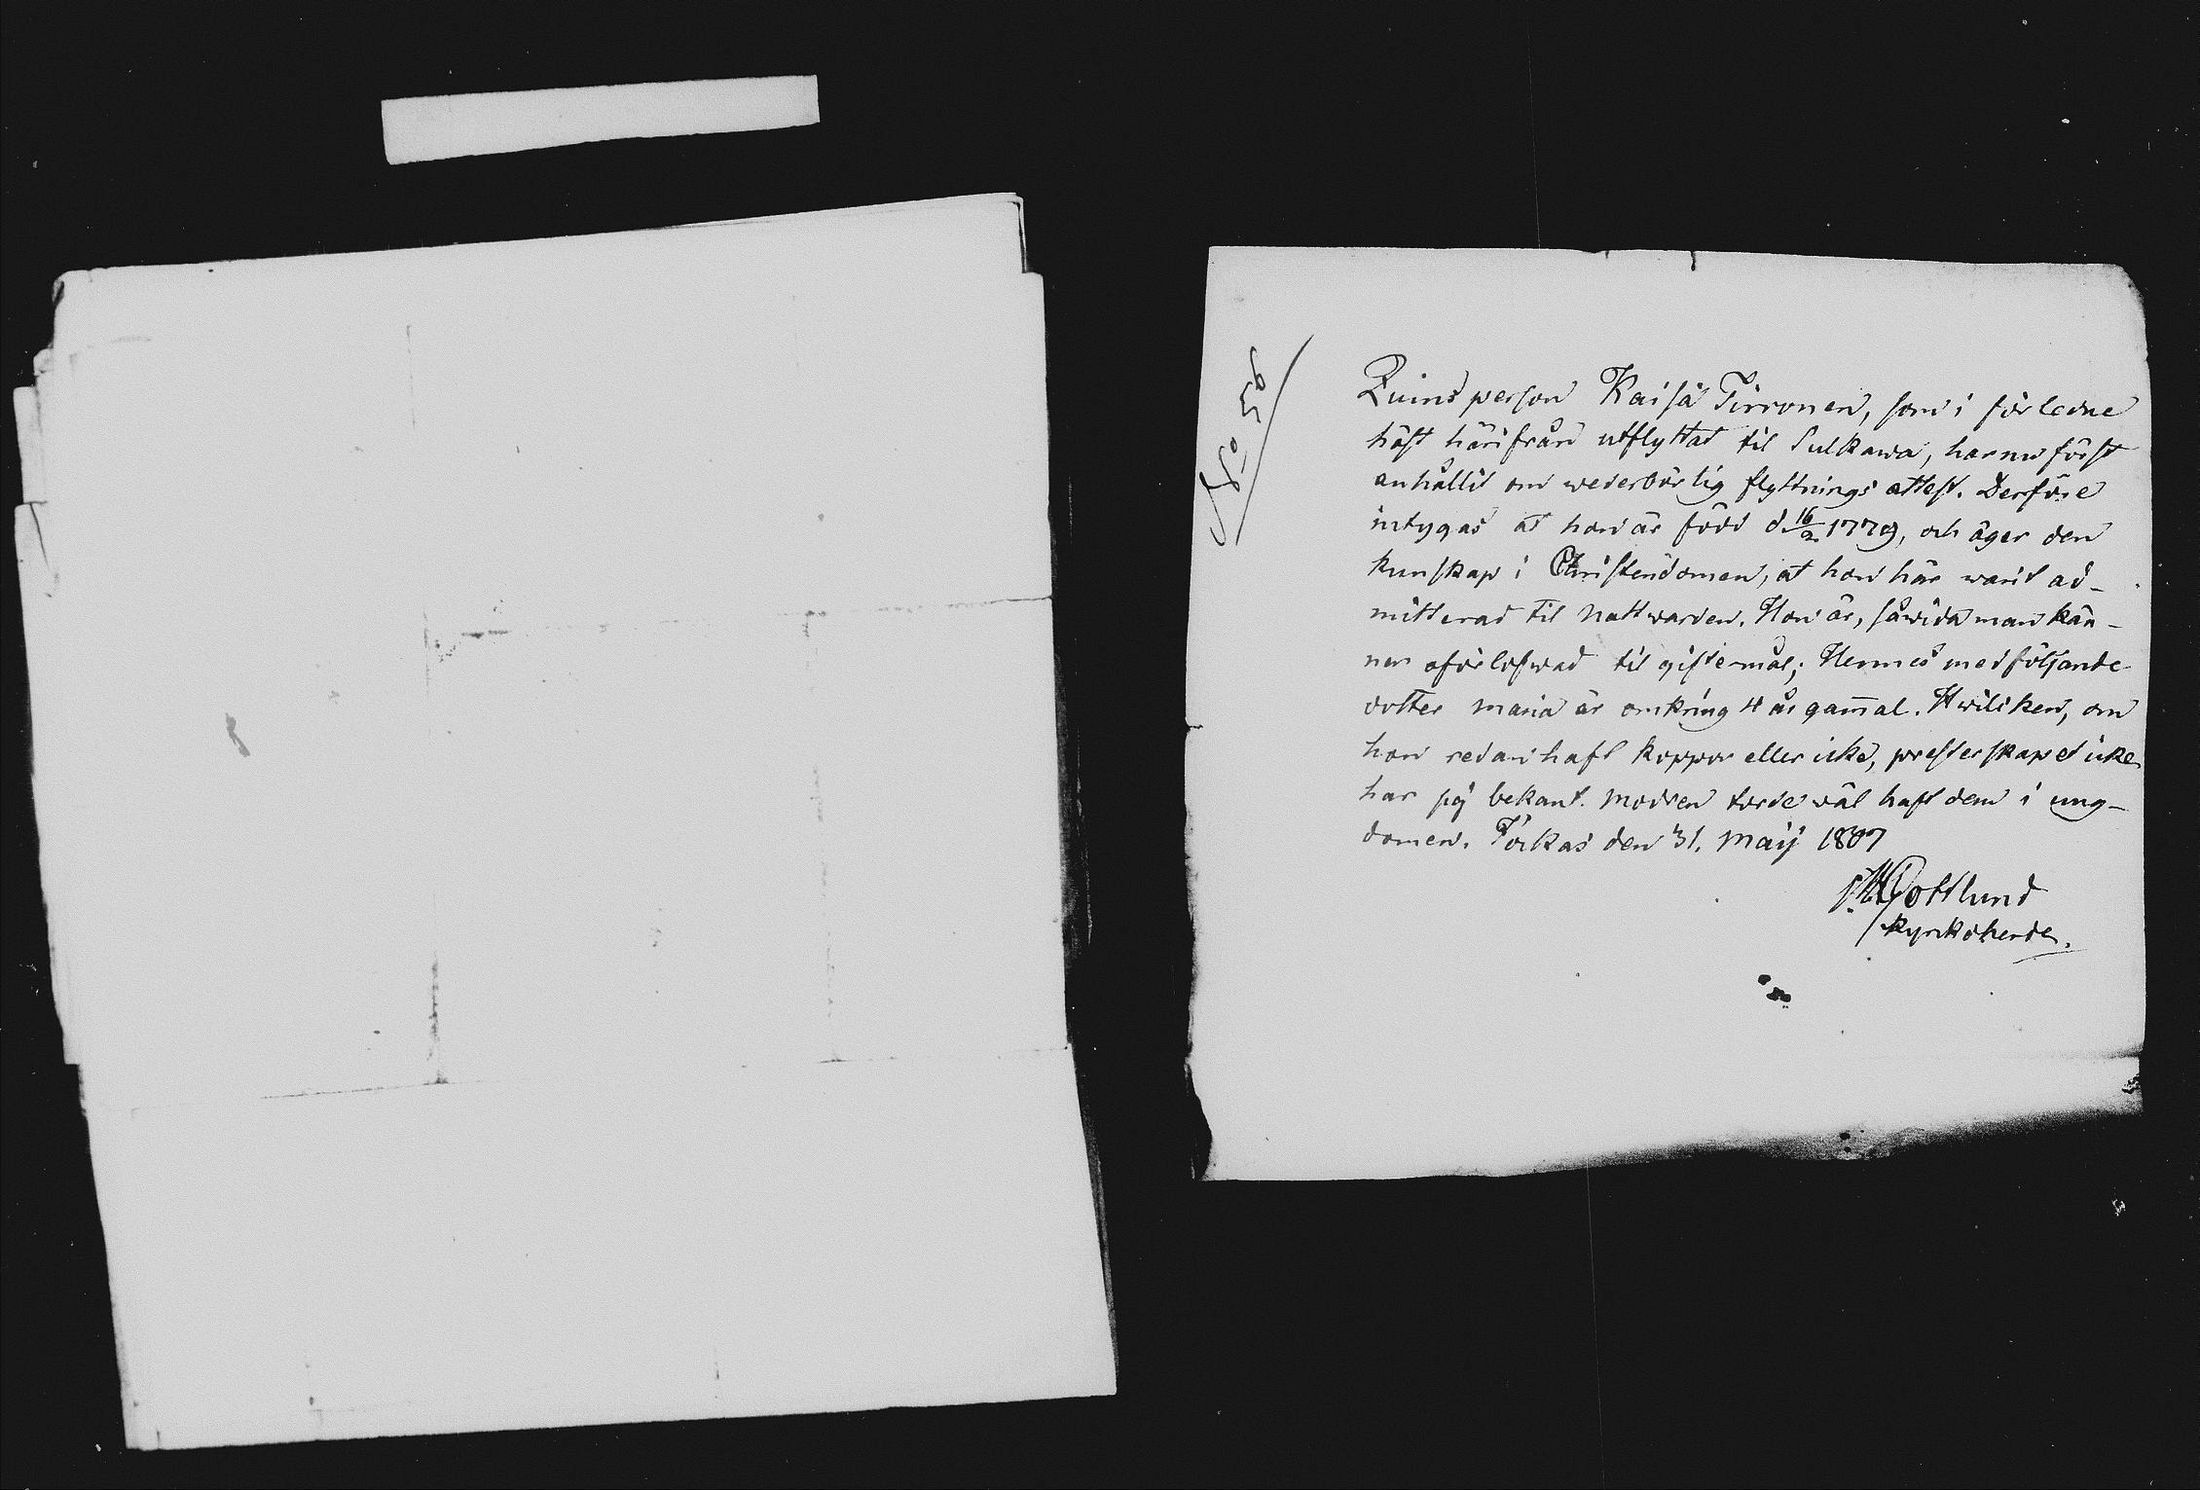 No 56
Quins person Kaisa Tirronen, som i förledne
höst härifrån utflyttat til Sulkawa, har nu först
anhållit om wederbörlig flyttnings attest. Derföre
intygas at hon är född d 16/2 1779, och äger den
kunskap i Christendomen, at hon här warit ad-
mitterad til Nattwarden. Hon är, såwida man kän-
ner oförlofwad til giftermål; Hennes medföljande
dotter Maria är omkring 4 år gammal. Hwilken, om
hon redan haft koppor eller icke, presterskapet icke
har sig bekant. Modren torde wäl haft dem i ung-
domen. Jockas den 31. Maij 1807
Gottlund
Kyrkoherde.